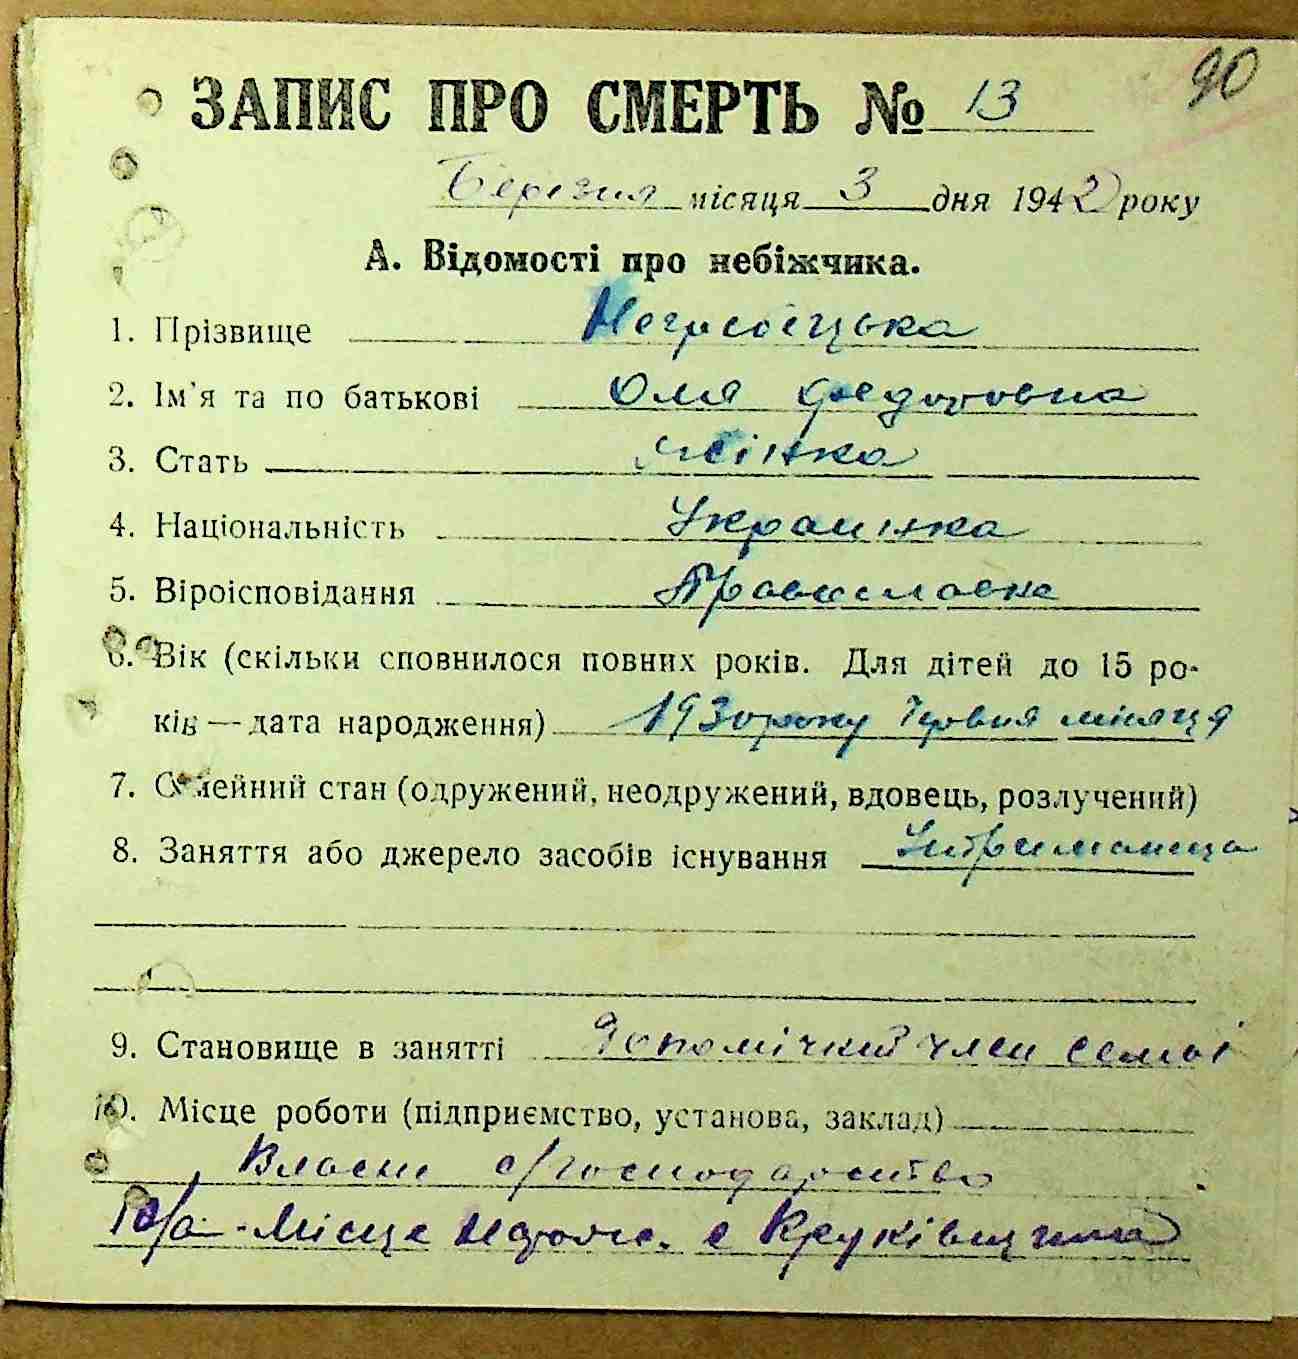 90
ЗАПИС ПРО СМЕРТЬ № 13
Березня місяця 3 дня 1942 року
А. Відомості про небіжчика.
1. Прізвище Негребецька
2. Ім'я та по батькові Оля Федоровна
3. Стать Жінка
4. Національність Украинка
5. Віроісповідання Православна
6. Вік (скільки сповнилося повних років. Для дітей до 15 ро-
ків — дата народження) 1930 року Червня місяця
7. Сімейний стан (одружений, неодружений, вдовець, розлучений)
8. Заняття або джерело засобів існування Утриманица
9. Становище в занятті Допомічний член семьі
10. Місце роботи (підприємство, установа, заклад)
Власне с/господарство
10/а - Місце нарож. с Круківщина